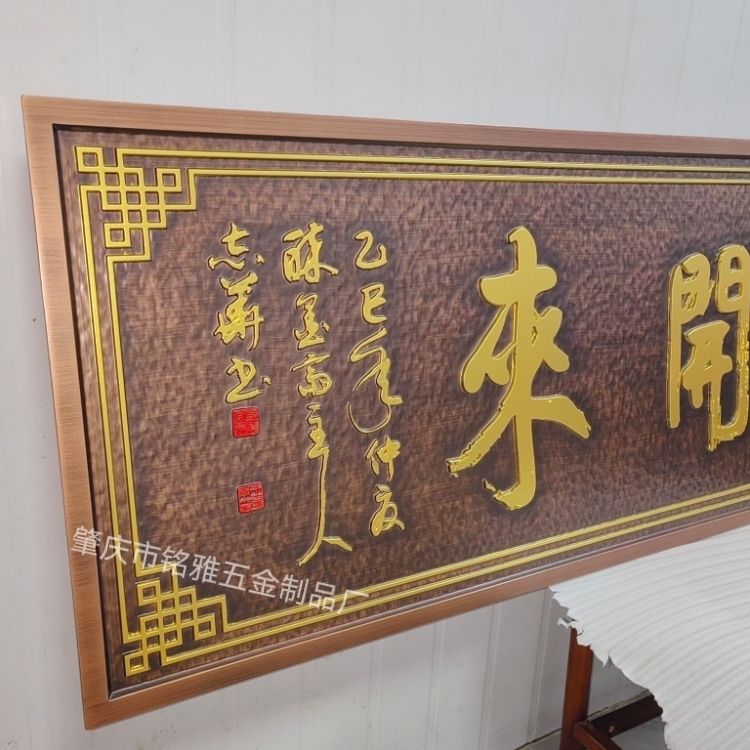 開來
乙巳年仲夏
陳墨齋主人
志華書
肇庆市铭雅五金制品厂